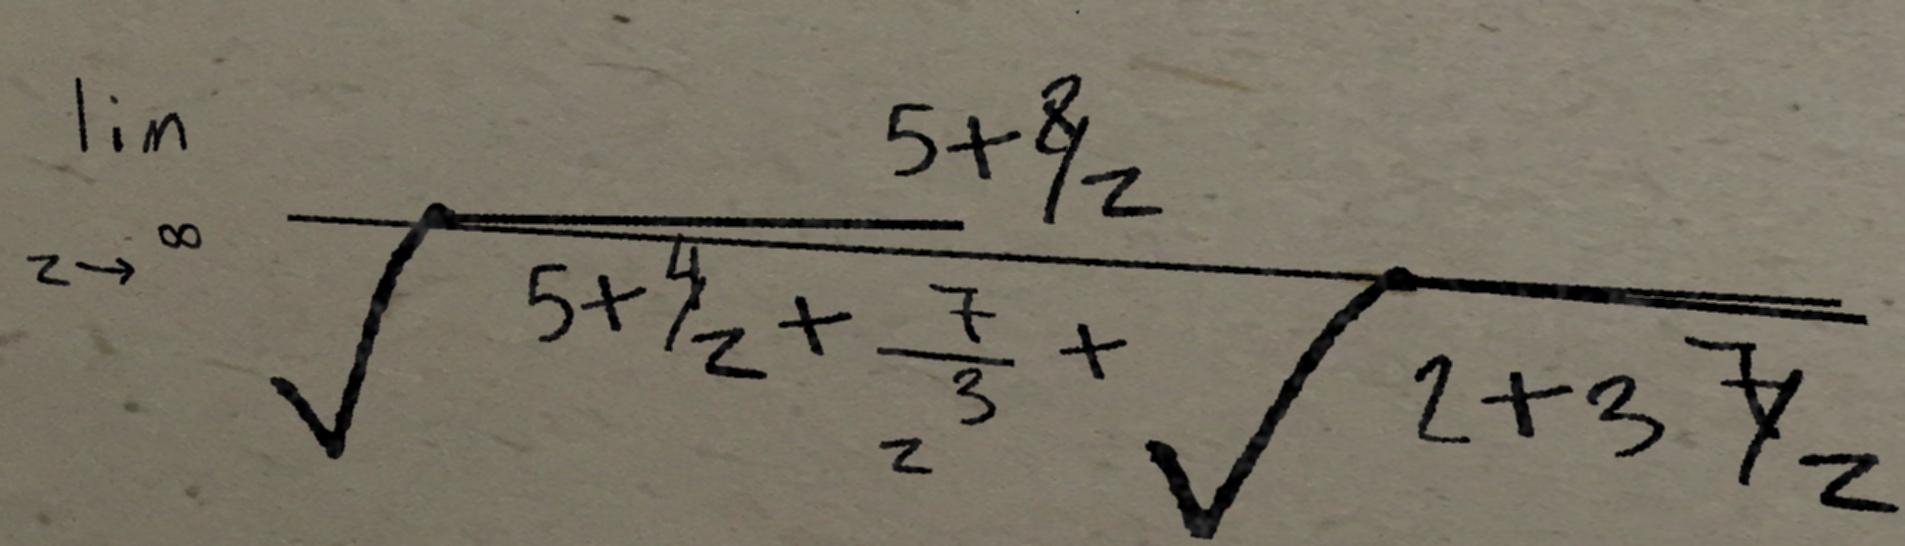 \lim_{z \to \infty} \frac{5 + 8/z}{\sqrt{5 + 4/z + \frac{7}{z^3}} + \sqrt{2 + 37/z}}